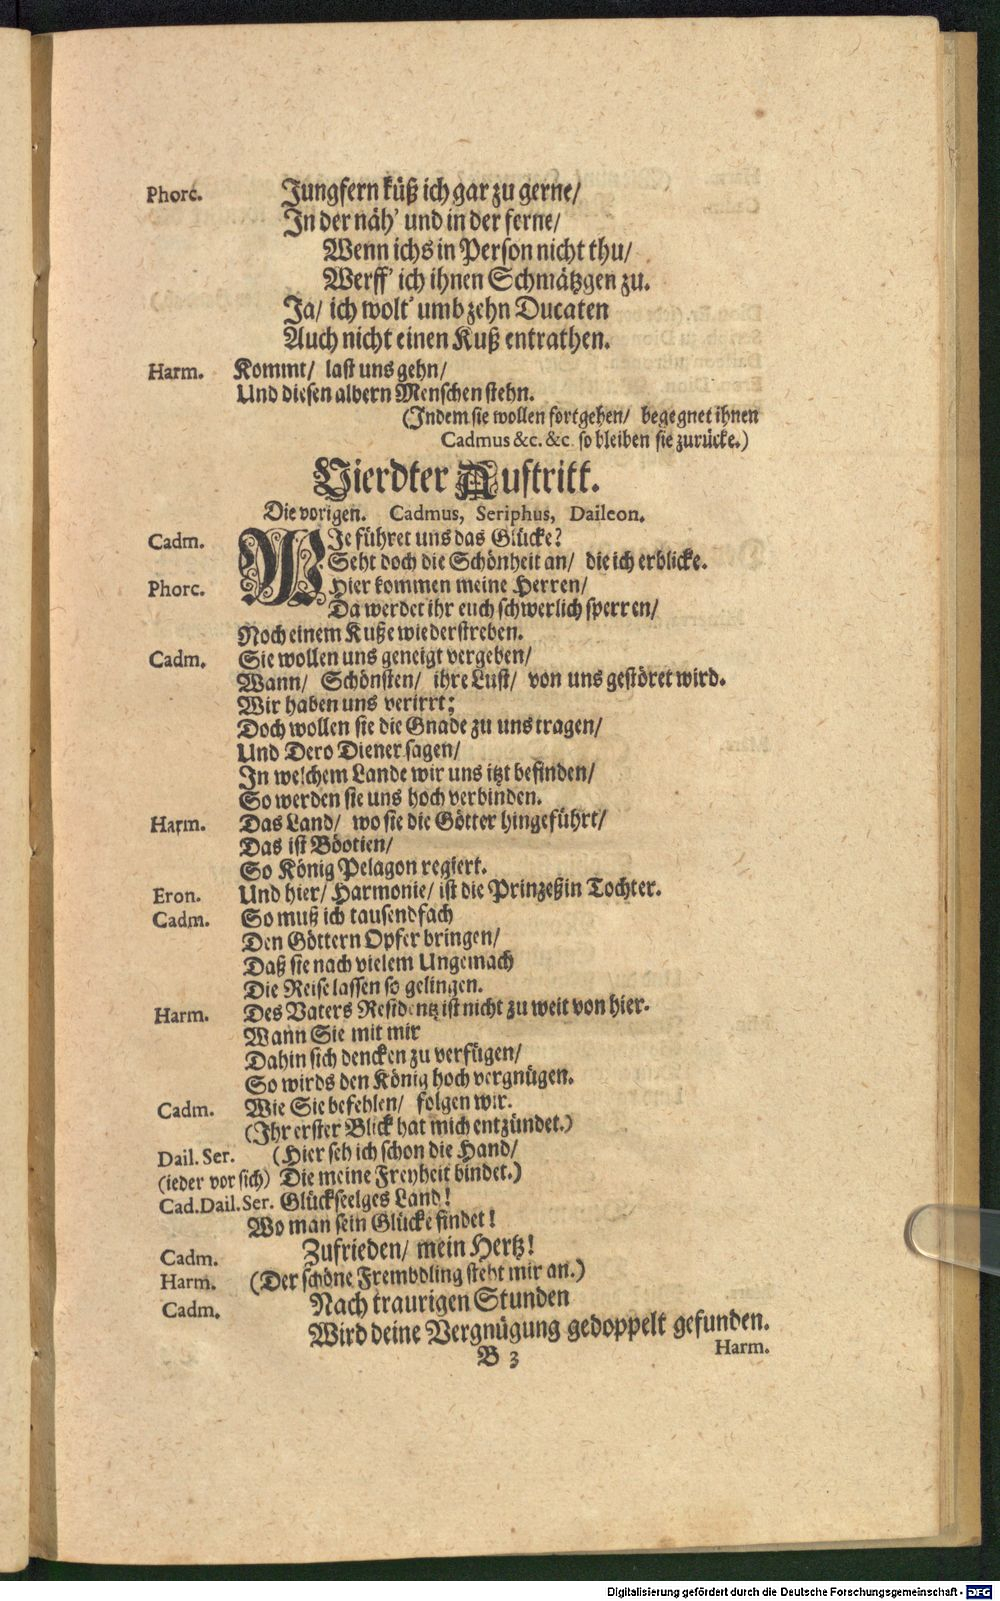 Phorc. Jungfern küß ich gar zu gerne/
In der näh' und in der ferne/
Wenn ichs in Person nicht thu/
Werff' ich ihnen Schmätzgen zu.
Ja/ ich wolt' umb zehn Ducaten
Auch nicht einen Kuß entrathen.
Harm. Kommt/ last uns gehn/
Und diesen albern Menschen stehn.
(Indem sie wollen fortgehen/ begegnet ihnen
Cadmus &c. &c. so bleiben sie zurücke.)
Vierdter Auftritt.
Die vorigen. Cadmus, Seriphus, Daileon.
Cadm. WJe führet uns das Glücke?
Seht doch die Schönheit an/ die ich erblicke.
Phorc. Hier kommen meine Herren/
Da werdet ihr euch schwerlich sperren/
Noch einem Kuße wiederstreben.
Cadm. Sie wollen uns geneigt vergeben/
Wann/ Schönsten/ ihre Lust/ von uns gestöret wird.
Wir haben uns verirrt;
Doch wollen sie die Gnade zu uns tragen/
Und Dero Diener sagen/
In welchem Lande wir uns itzt befinden/
So werden sie uns hoch verbinden.
Harm. Das Land/ wo sie die Götter hingeführt/
Das ist Böotien/
So König Pelagon regiert.
Eron. Und hier/ Harmonie/ ist die Prinzeßin Tochter.
Cadm. So muß ich tausendfach
Den Göttern Opfer bringen/
Daß sie nach vielem Ungemach
Die Reise lassen so gelingen.
Harm. Des Vaters Residentz ist nicht zu weit von hier.
Wann Sie mit mir
Dahin sich dencken zu verfügen/
So wirds den König hoch vergnügen.
Cadm. Wie Sie befehlen/ folgen wir.
(Ihr erster Blick hat mich entzündet.)
Dail. Ser. (Hier seh ich schon die Hand/
(ieder vor sich) Die meine Freyheit bindet.)
Cad. Dail. Ser. Glückseelges Land!
Wo man sein Glücke findet!
Cadm. Zufrieden/ mein Hertz!
Harm. (Der schöne Frembdling steht mir an.)
Cadm. Nach traurigen Stunden
Wird deine Vergnügung gedoppelt gefunden.
B 3 Harm.
Digitalisierung gefördert durch die Deutsche Forschungsgemeinschaft - DFG